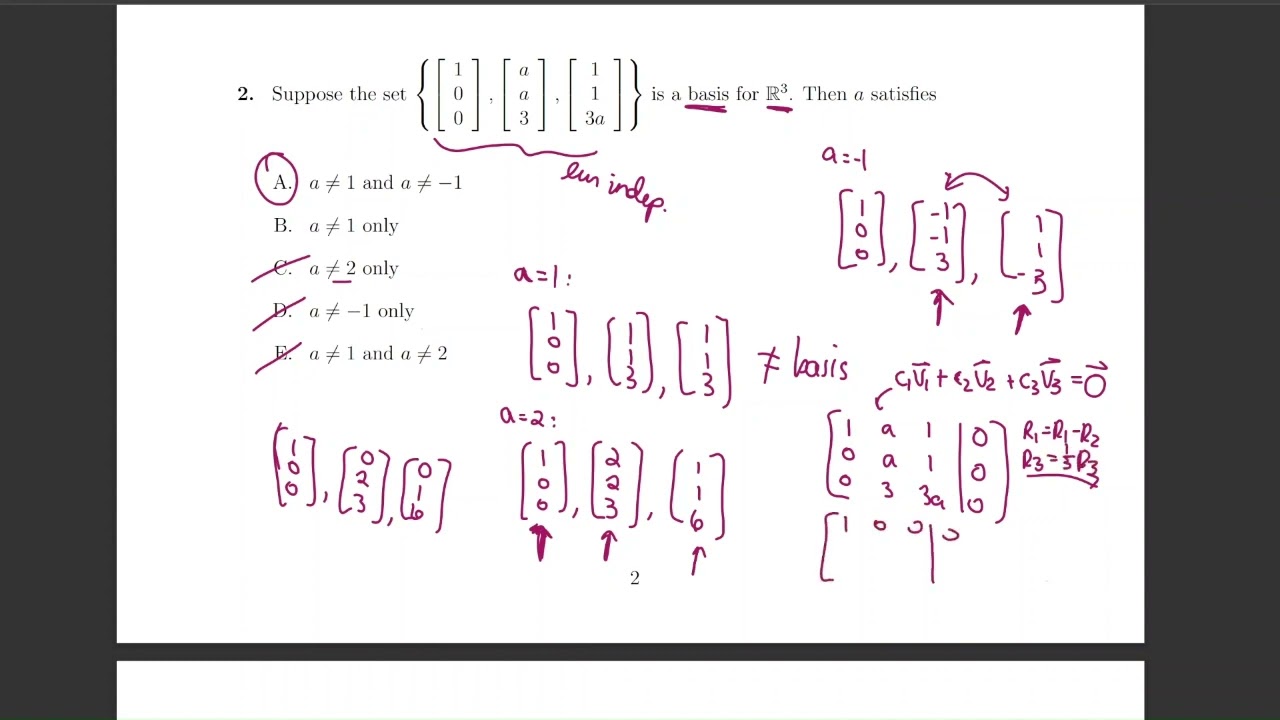 2. Suppose the set { [1 0 0], [a a 3], [1 1 3a] } is a basis for ℝ³. Then a satisfies
lin indep.
A. a ≠ 1 and a ≠ −1
B. a ≠ 1 only
C. a ≠ 2 only
D. a ≠ −1 only
E. a ≠ 1 and a ≠ 2
a=-1
[1 0 0], [-1 -1 3], [1 1 -3]
a=1:
[1 0 0], [1 1 3], [1 1 3] ≠ basis
a=2:
[1 0 0], [2 2 3], [1 1 6]
[1 0 0], [0 2 3], [0 1 6]
C₁V₁ + C₂V₂ + C₃V₃ = 0
1 a 1 | 0
0 a 1 | 0
0 3 3a | 0
R₁=R₁-R₂
R₃=⅓R₃
1 0 0 | 0
2